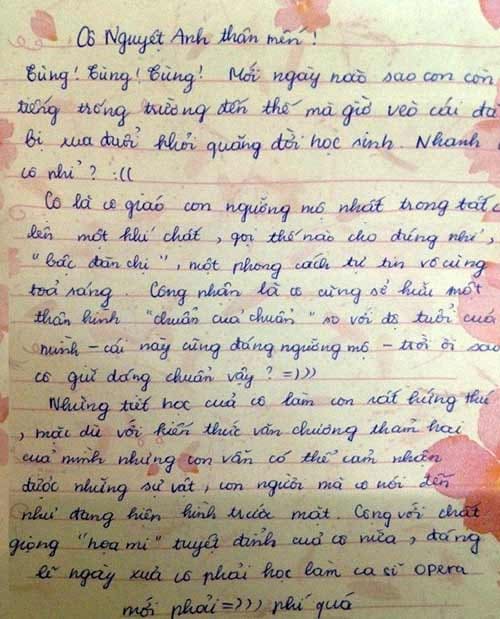 Cô Nguyệt Anh thân mến!
Tùng! Tùng! Tùng! Mới ngày nào sao con còn
tiếng trống trường đến thế mà giờ vèo cái đã
bị xua đuổi khỏi quãng đời học sinh. Nhanh
cô nhỉ? :((
Cô là cô giáo con ngưỡng mộ nhất trong tất c
lên một khí chất, gọi thế nào cho đúng nhỉ,
"bậc đàn chị", một phong cách tự tin vô cùng
toả sáng. Công nhận là cô cũng sở hữu một
thân hình "chuẩn của chuẩn" so với độ tuổi của
mình - cái này cũng đáng ngưỡng mộ - trời ơi sao
cô giữ dáng chuẩn vậy? =)))
Những tiết học của cô làm con rất hứng thú
, mặc dù với kiến thức văn chương thảm hại
của mình nhưng con vẫn có thể cảm nhận
được những sự vật, con người mà cô nói đến
như đang hiện hình trước mặt. Cộng với chất
giọng "hoạ mi" tuyệt đỉnh của cô nữa, đáng
lẽ ngày xưa cô phải học làm ca sĩ opera
mới phải =))) phí quá